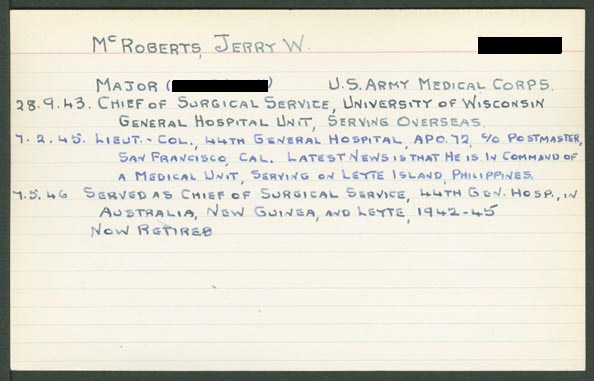 McRoberts, Jerry W.
Major ( ) U.S. Army Medical Corps.
28.9.43. Chief of Surgical Service, University of Wisconsin
General Hospital Unit, Serving Overseas.
7.2.45. Lieut.-Col., 44th General Hospital, APO.72, c/o Postmaster,
San Francisco, Cal. Latest News is that he is in Command of
a Medical Unit, serving on Leyte Island, Philippines.
7.5.46 Served as Chief of Surgical Service, 44th Gen. Hosp., in
Australia, New Guinea, and Leyte, 1942-45
Now Retired